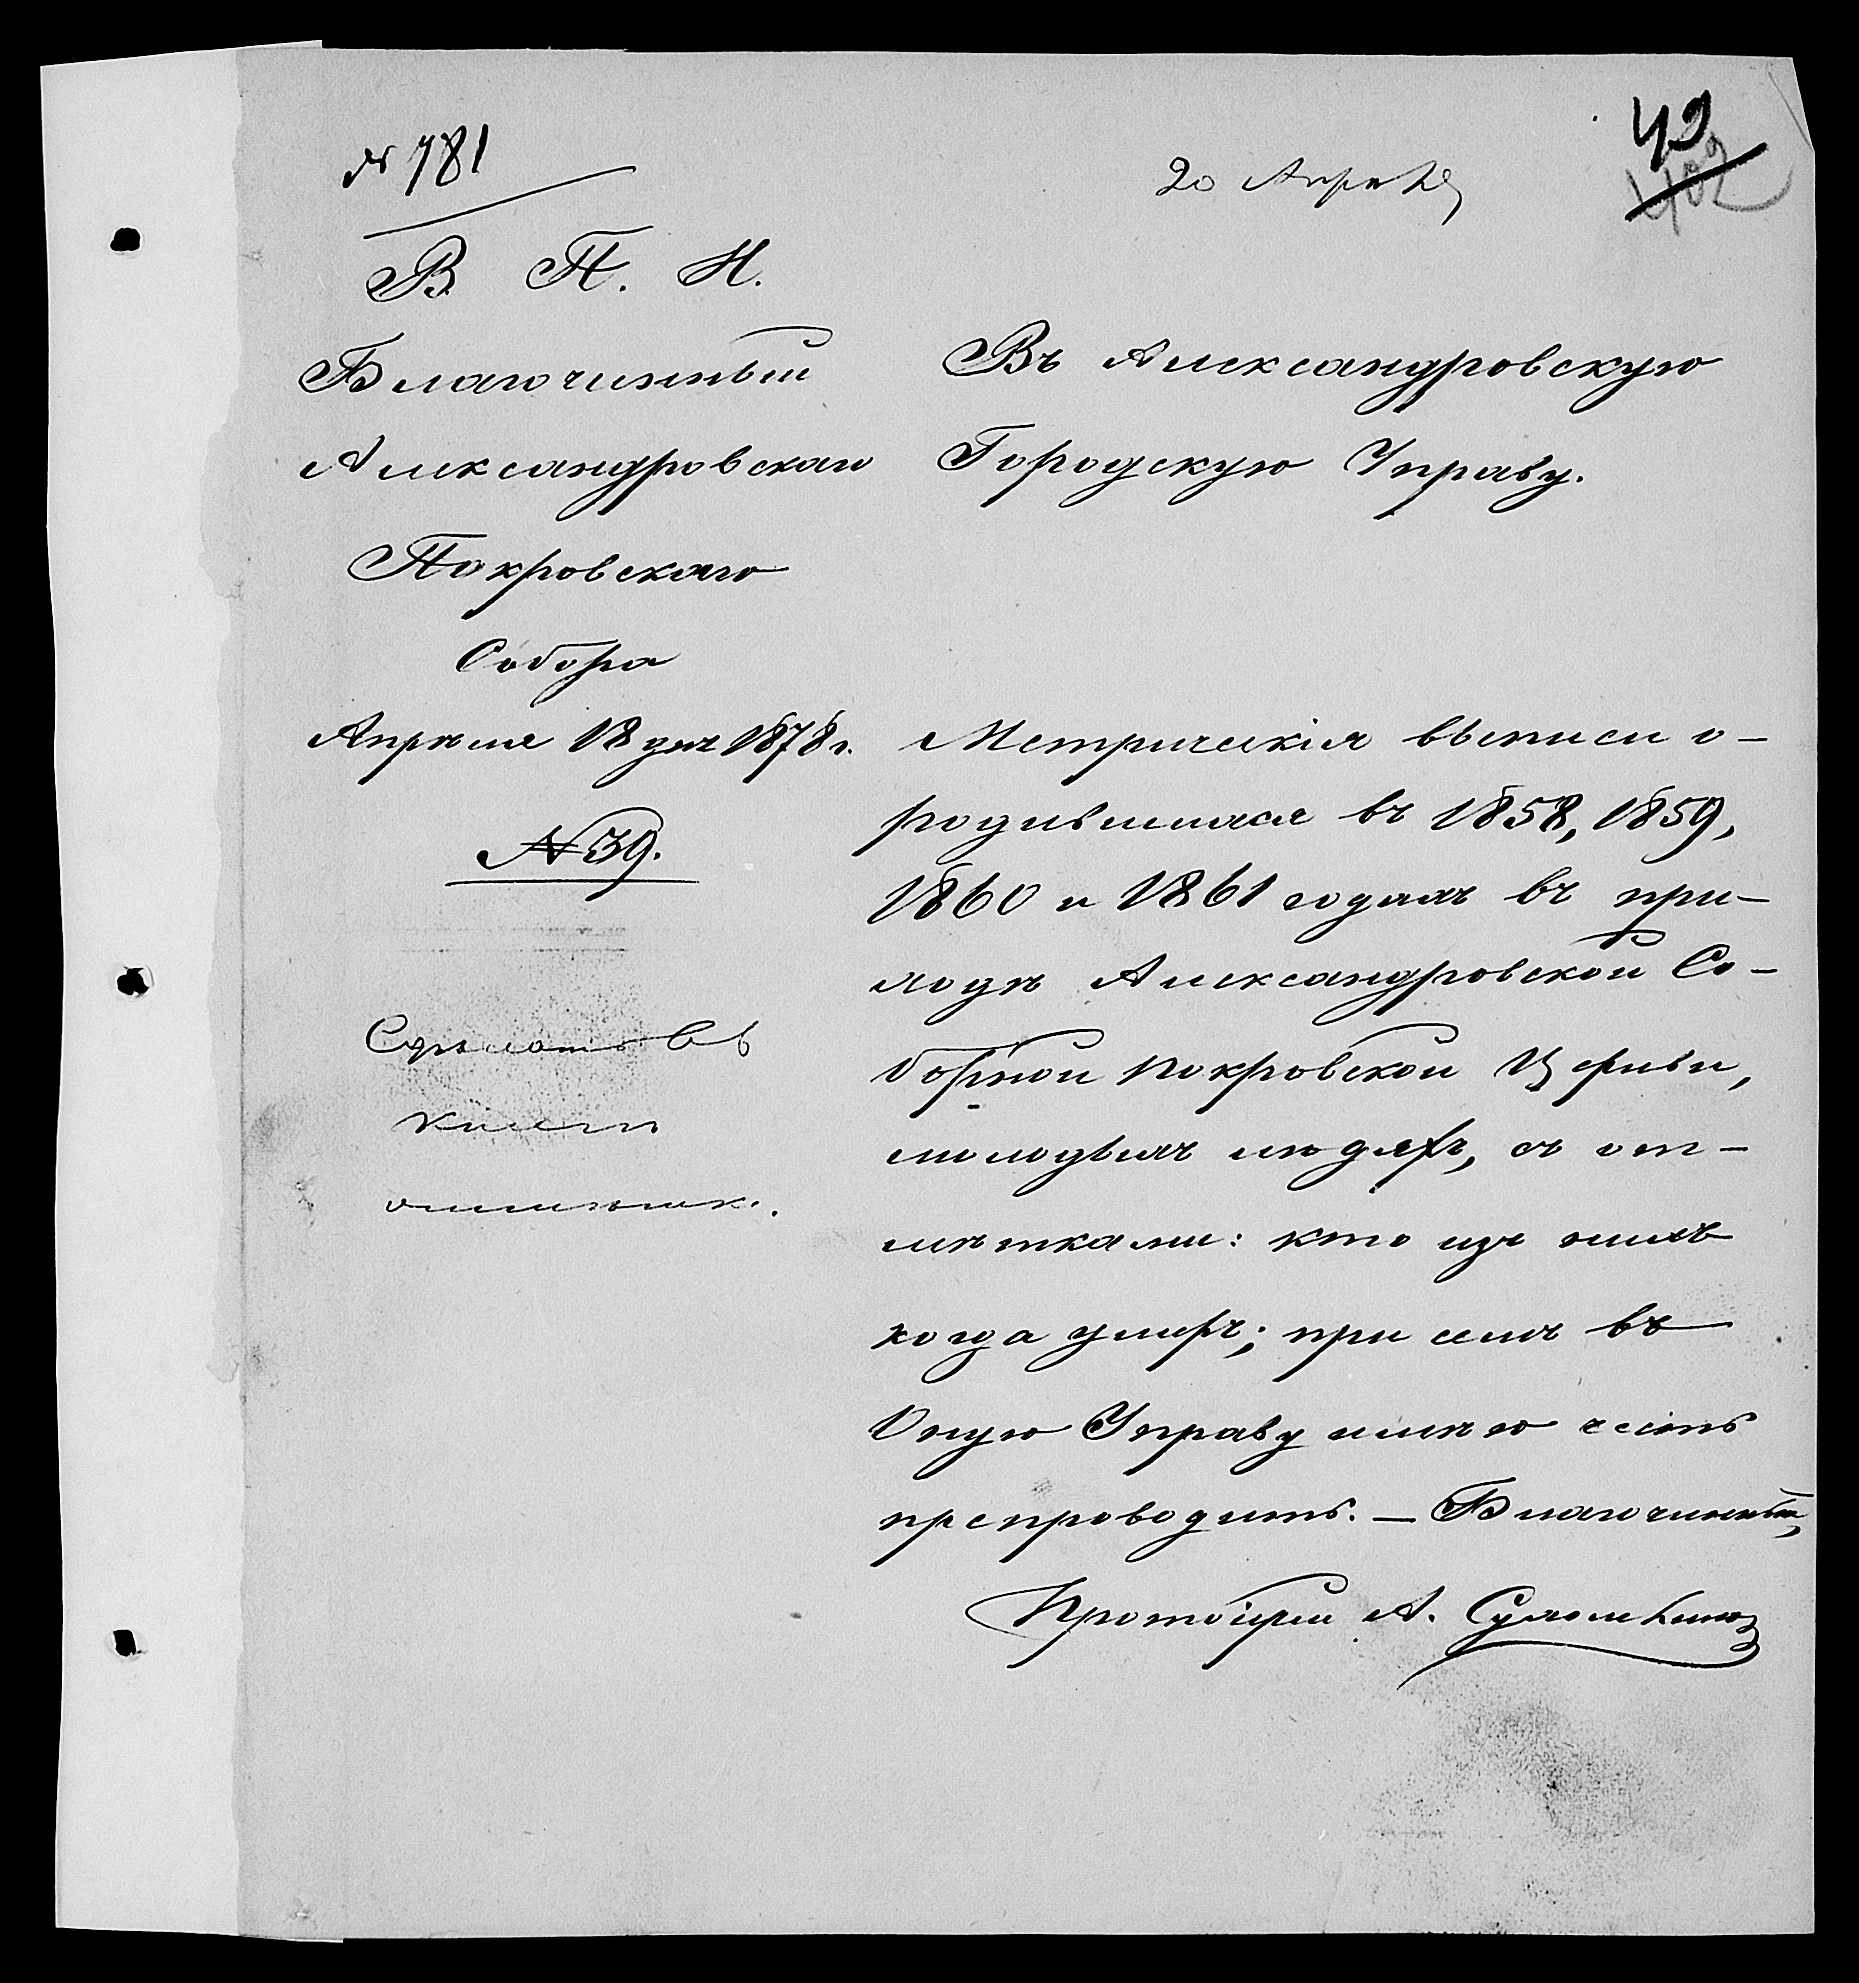 № 781
20 Апрѣля
49
402
В. П. И.
Благочинный
Александровскаго
Покровскаго
Собора
Апрѣля 18 дня 1878 г.
№ 39.
Въ Александровскую
Городскую Управу.
Метрическія выписи о-
родившихся въ 1858, 1859,
1860 и 1861 годахъ въ при-
ходѣ Александровской Со-
борной Покровской Церкви,
молодыхъ людяхъ, съ от-
мѣтками: кто изъ нихъ
когда умеръ; при семъ въ
Оную Управу имѣю честь
препроводить. — Благочинный,
Протоіерей А.